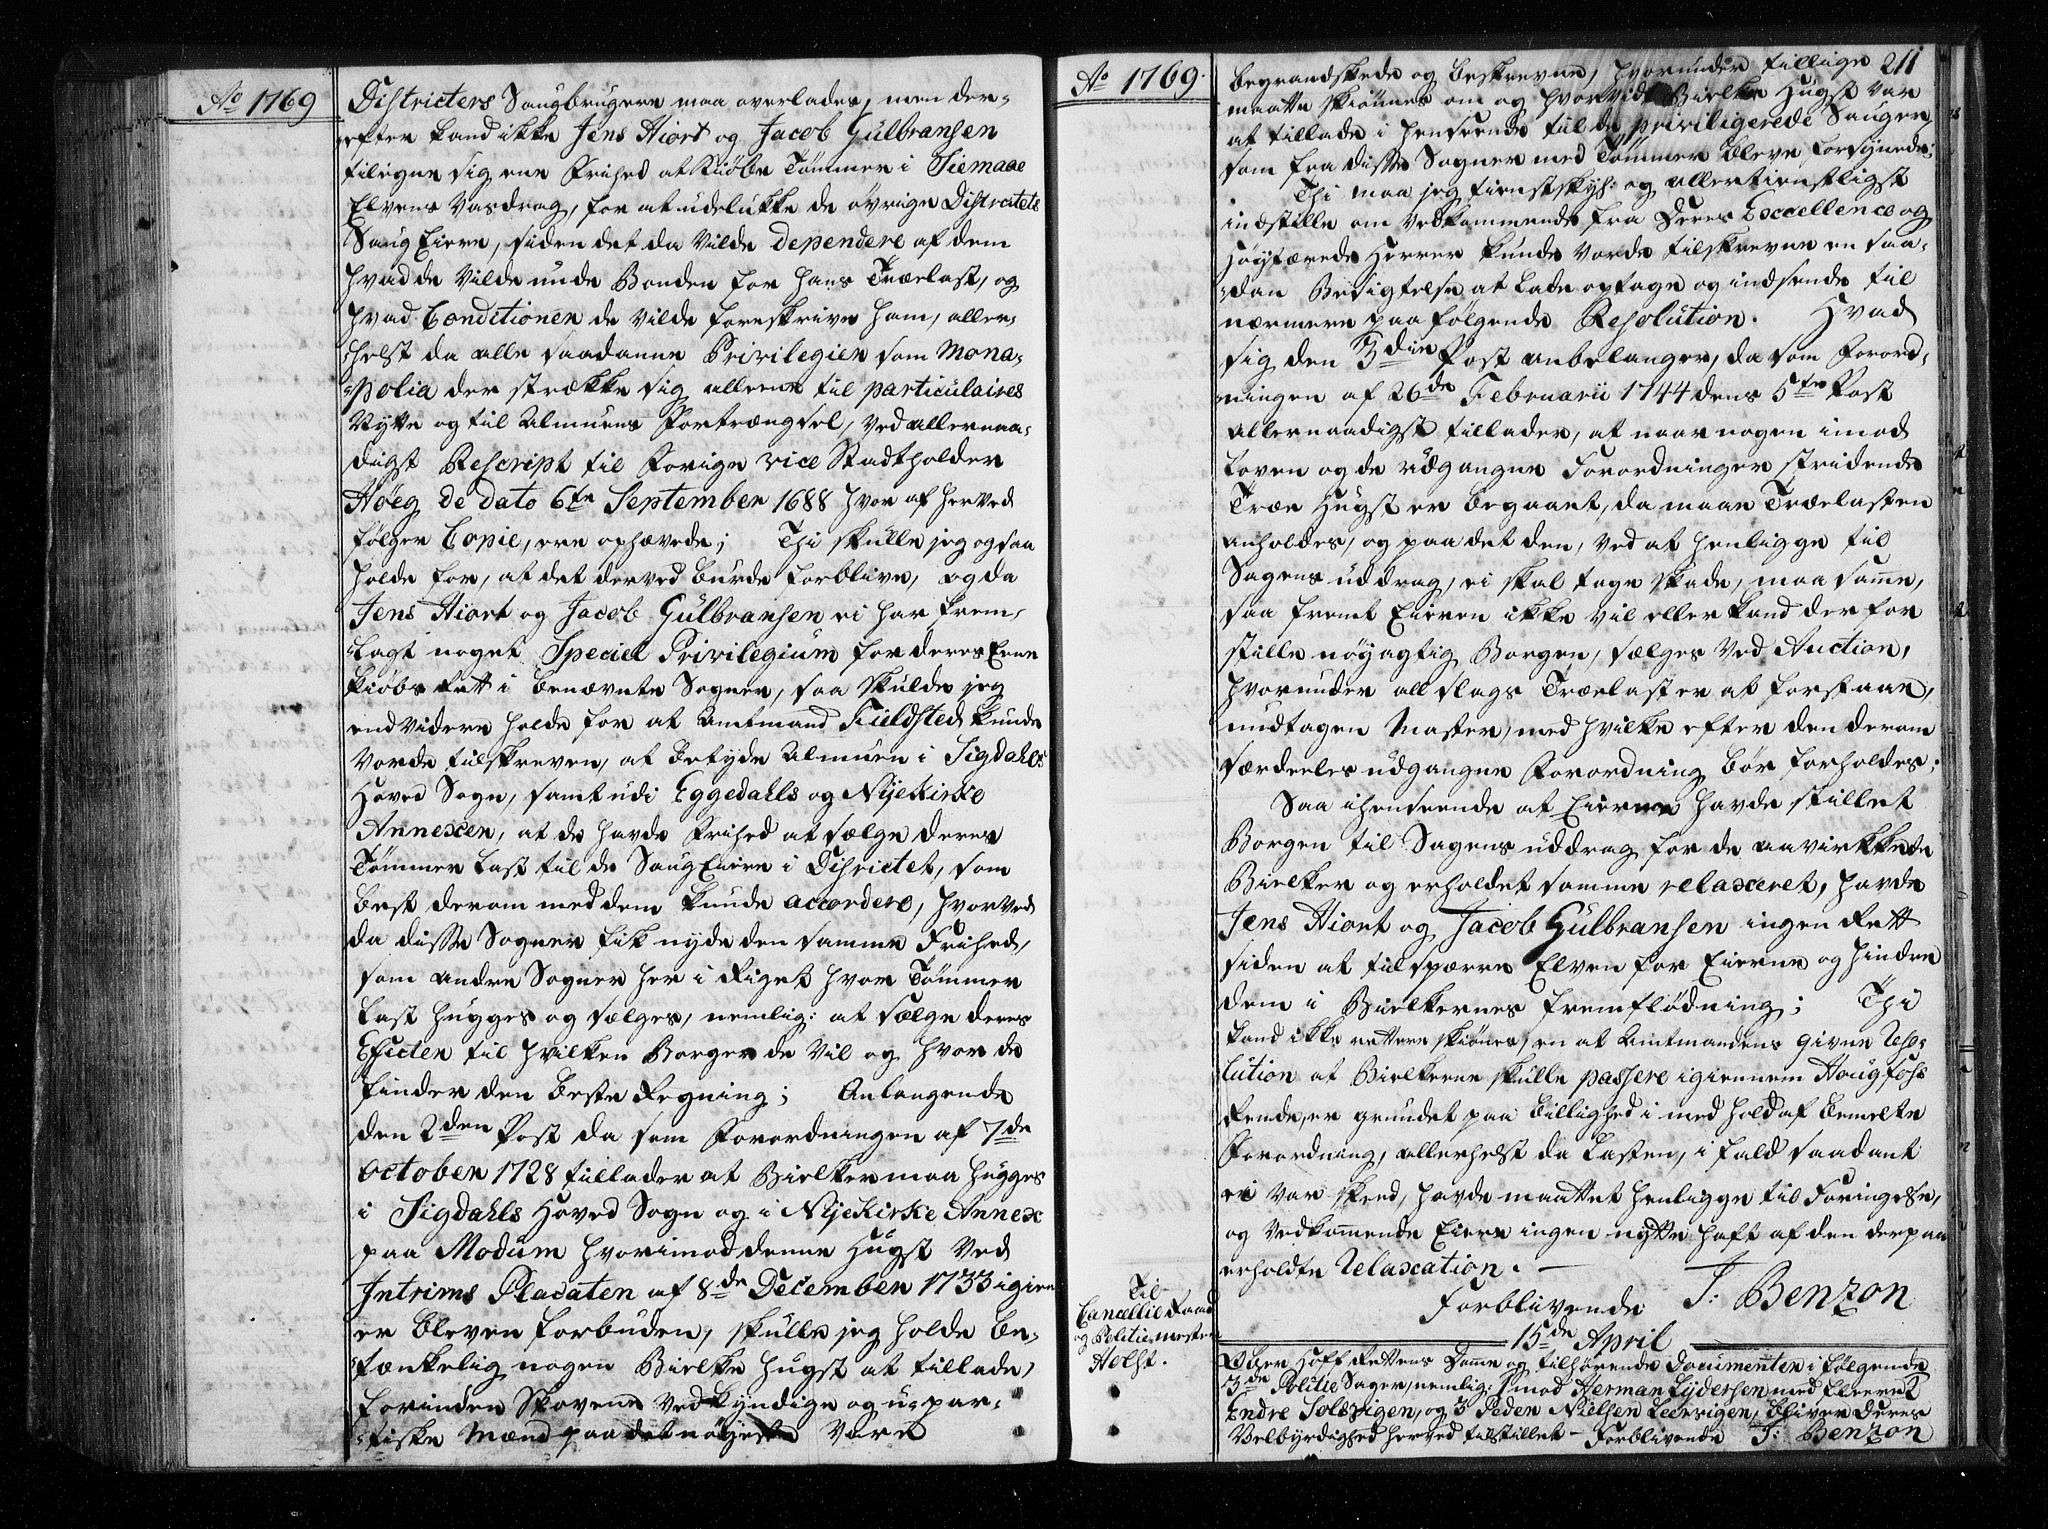 Ao 1769
Districters Saugbrugere maa overlades, men der-
efter kand ikke Jens Hiort og Jacob Gülbransen
tilegne sig ene Frihed at kiöbe Tömmer i Siemaae
Elvens Vasdrag, for at udelukke de övrige Districtets
Saug Eiere, siden det da vilde dependere af dem
hvad de vilde unde Bonden for hans Trælast, og
hvad Conditioner de vilde foreskrive ham, aller-
helst da alle saadanne Privilegier som Mono-
polia der strække sig alleene til particulaires
Nytte og til Almuens Fortrængsel, ved allernaa-
digst Rescript til Forige vice Stadtholder
Höeg de dato 6te September 1688 hvor af herved
fölger Copie, ere ophævede; Thi skulle jeg ogsaa
holde for, at det derved burde forblive, og da
Jens Hiort og Jacob Gülbransen ei har frem-
lagt noget Speciel Privilegium for deres Eene
kiöbs Rett i benævnte Sogner, saa skulde jeg
endvidere holde for at Amtmand Fieldsted kunde
vorde tilskreven, at betyde Almuen i Sigdahls
Hoved Sogn, samt udi Eggedahls og Nÿekirke
Annexer, at de havde Frihed at sælge deres
Tömmer Last til de Saug Eiere i Districtet, som
best derom med dem kunde accordere, hvorved
da disse Sogner fik nyde den samme Frihed,
som andre Sogner her i Riget hvor Tömmer
Last hugges og sælges, nemlig: at sælge deres
Effecter til hvilken Borger de vil og hvor de
finder den beste Regning; Anlangende
den 2den Post da som Forordningen af 7de
October 1728 tillader at Bielker maa hugges
i Sigdahls Hoved Sogn og i Nÿekirke Annex
paa Modum hvorimod denne Hugst ved
Intrims Placaten af 8de December 1733 igien
er bleven forbuden, skulle jeg holde be-
tænkelig nogen Bielke Hugst at tillade,
forinden Skovene ved kyndige og u-par-
tiske Mænd paa det nöyeste vare
Ao 1769.
211
begrandskede og beskrevne, hvorunder tillige
maatte skiönnes om og hvorvidt Bielke Hugst var
at tillade i henseende til de priviligerede Sauger,
som fra disse Sogner med Tömmer bleve forsynede;
Thi maa jeg tienstskyl: og allertienstligst
indstille om vedkommende fra Deres Excellence og
Höystærede Herrer kunde vorde tilskrevne en saa-
dan Besigtelse at lade optage og indsende til
nærmere paafölgende Resolution. Hvad
sig den 3die Post anbelanger, da som Forord-
ningen af 26de Februarii 1744 dens 5te Post
allernaadigst tillader, at naar nogen imod
Loven og de udgangne Forordninger stridende
Træe Hugst er begaaet, da maae Trælasten
anholdes, og paa det den, ved at henligge til
Sagens uddrag, ei skal tage skade, maa samme,
saa fremt Eieren ikke vil eller kand derfor
stille nöyagtig Borgen, sælges ved Auction,
hvorunder all slags Trælast er at forstaae,
undtagen Master, med hvilke efter den derom
særdeeles udgangne Forordning bör forholdes;
Saa i henseende at Eierne havde stillet
Borgen til Sagens uddrag for de aavirkkede
Bielker og erholdet samme relaxeret, havde
Jens Hiort og Jacob Gülbransen ingen Rett
siden at tilspærre Elven for Eierne og hindre
dem i Bielkernes fremflödning; Thi
kand ikke rettere skiönes, en at Amtmandens givne Reso-
lution at Bielkerne skulle passere igiennem Haugfoss
Rende, er grundet paa Billighed i medhold af bemelte
Forordning, allerhelst da Lasten, i fald saadant
ei var skeed, havde maattet henligge til Foringelse,
og vedkommende Eiere ingen nytte haft af den derpaa
erholdte Relaxation.
Forblivende J: Benzon
15de April
Til
Cancellie Raad
og Politiemester
Holst.
Ober Hoff Rettens Domme og tilhörende Documenter i fölgende
3de Politie Sager, nemlig: 1 mod Herman Lÿdersen med fleere 2
Endre Solsvigen, og 3 Peder Nielsen Leervigen, bliver Deres
Velbyrdighed herved tilstillet - Forblivende J: Benzon